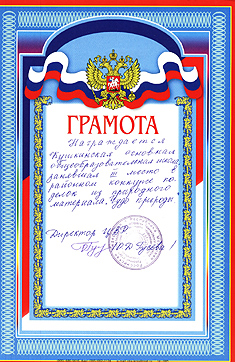 ГРАМОТА
Награждается
Кушкинская основная
общеобразовательная школа,
занявшая III место в
районном конкурсе по-
делок из природного
материала. Чудо природы.
Директор ЦВР